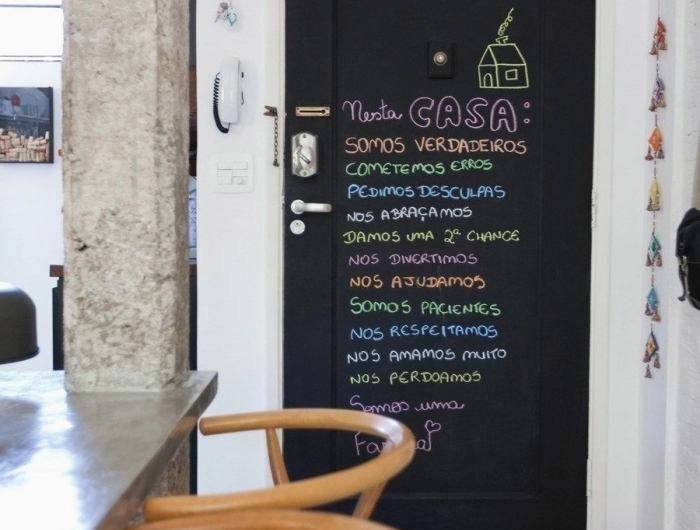 Nesta CASA:
SOMOS VERDADEIROS
COMETEMOS ERROS
PEDIMOS DESCULPAS
NOS ABRAÇAMOS
DAMOS UMA 2ª CHANCE
NOS DIVERTIMOS
NOS AJUDAMOS
SOMOS PACIENTES
NOS RESPEITAMOS
NOS AMAMOS MUITO
NOS PERDOAMOS
Somos uma